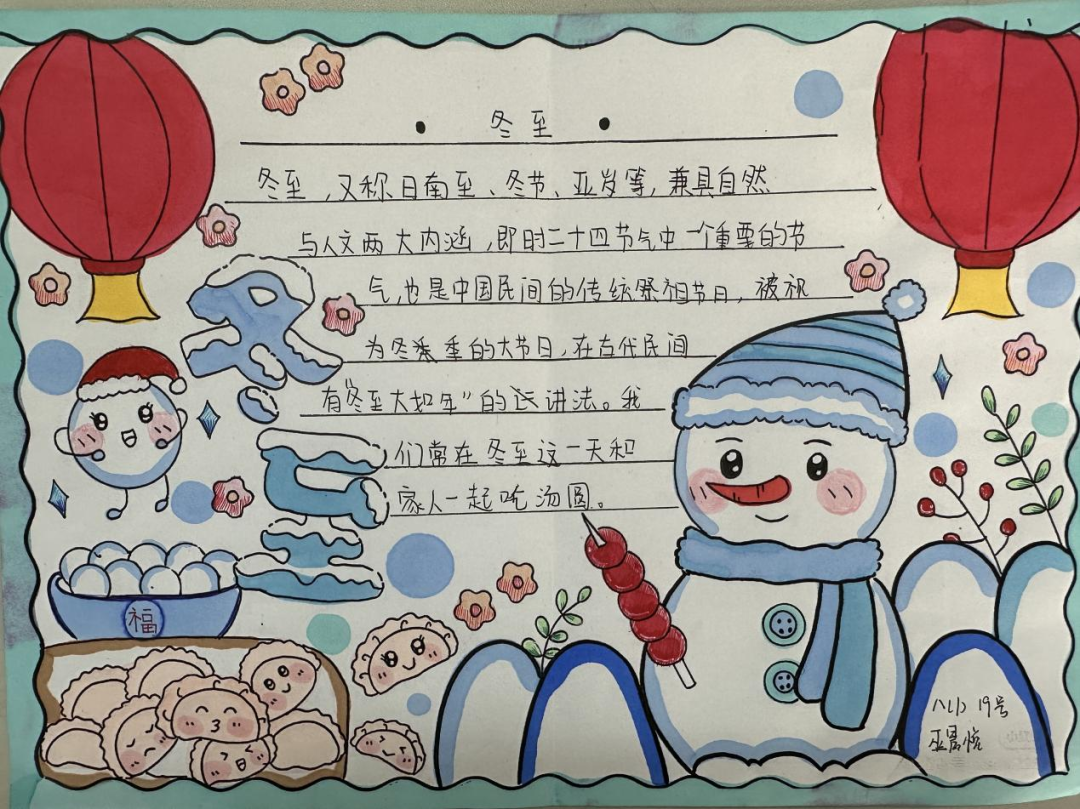 冬至
冬至，又称日南至、冬节、亚岁等，兼具自然
与人文两大内涵，即时二十四节气中一个重要的节
气，也是中国民间的传统祭祖节日，被视
为冬季的大节日，在古代民间
有“冬至大如年”的讲法。我
们常在冬至这一天和
家人一起吃汤圆。
冬至
福
八(1) 19号